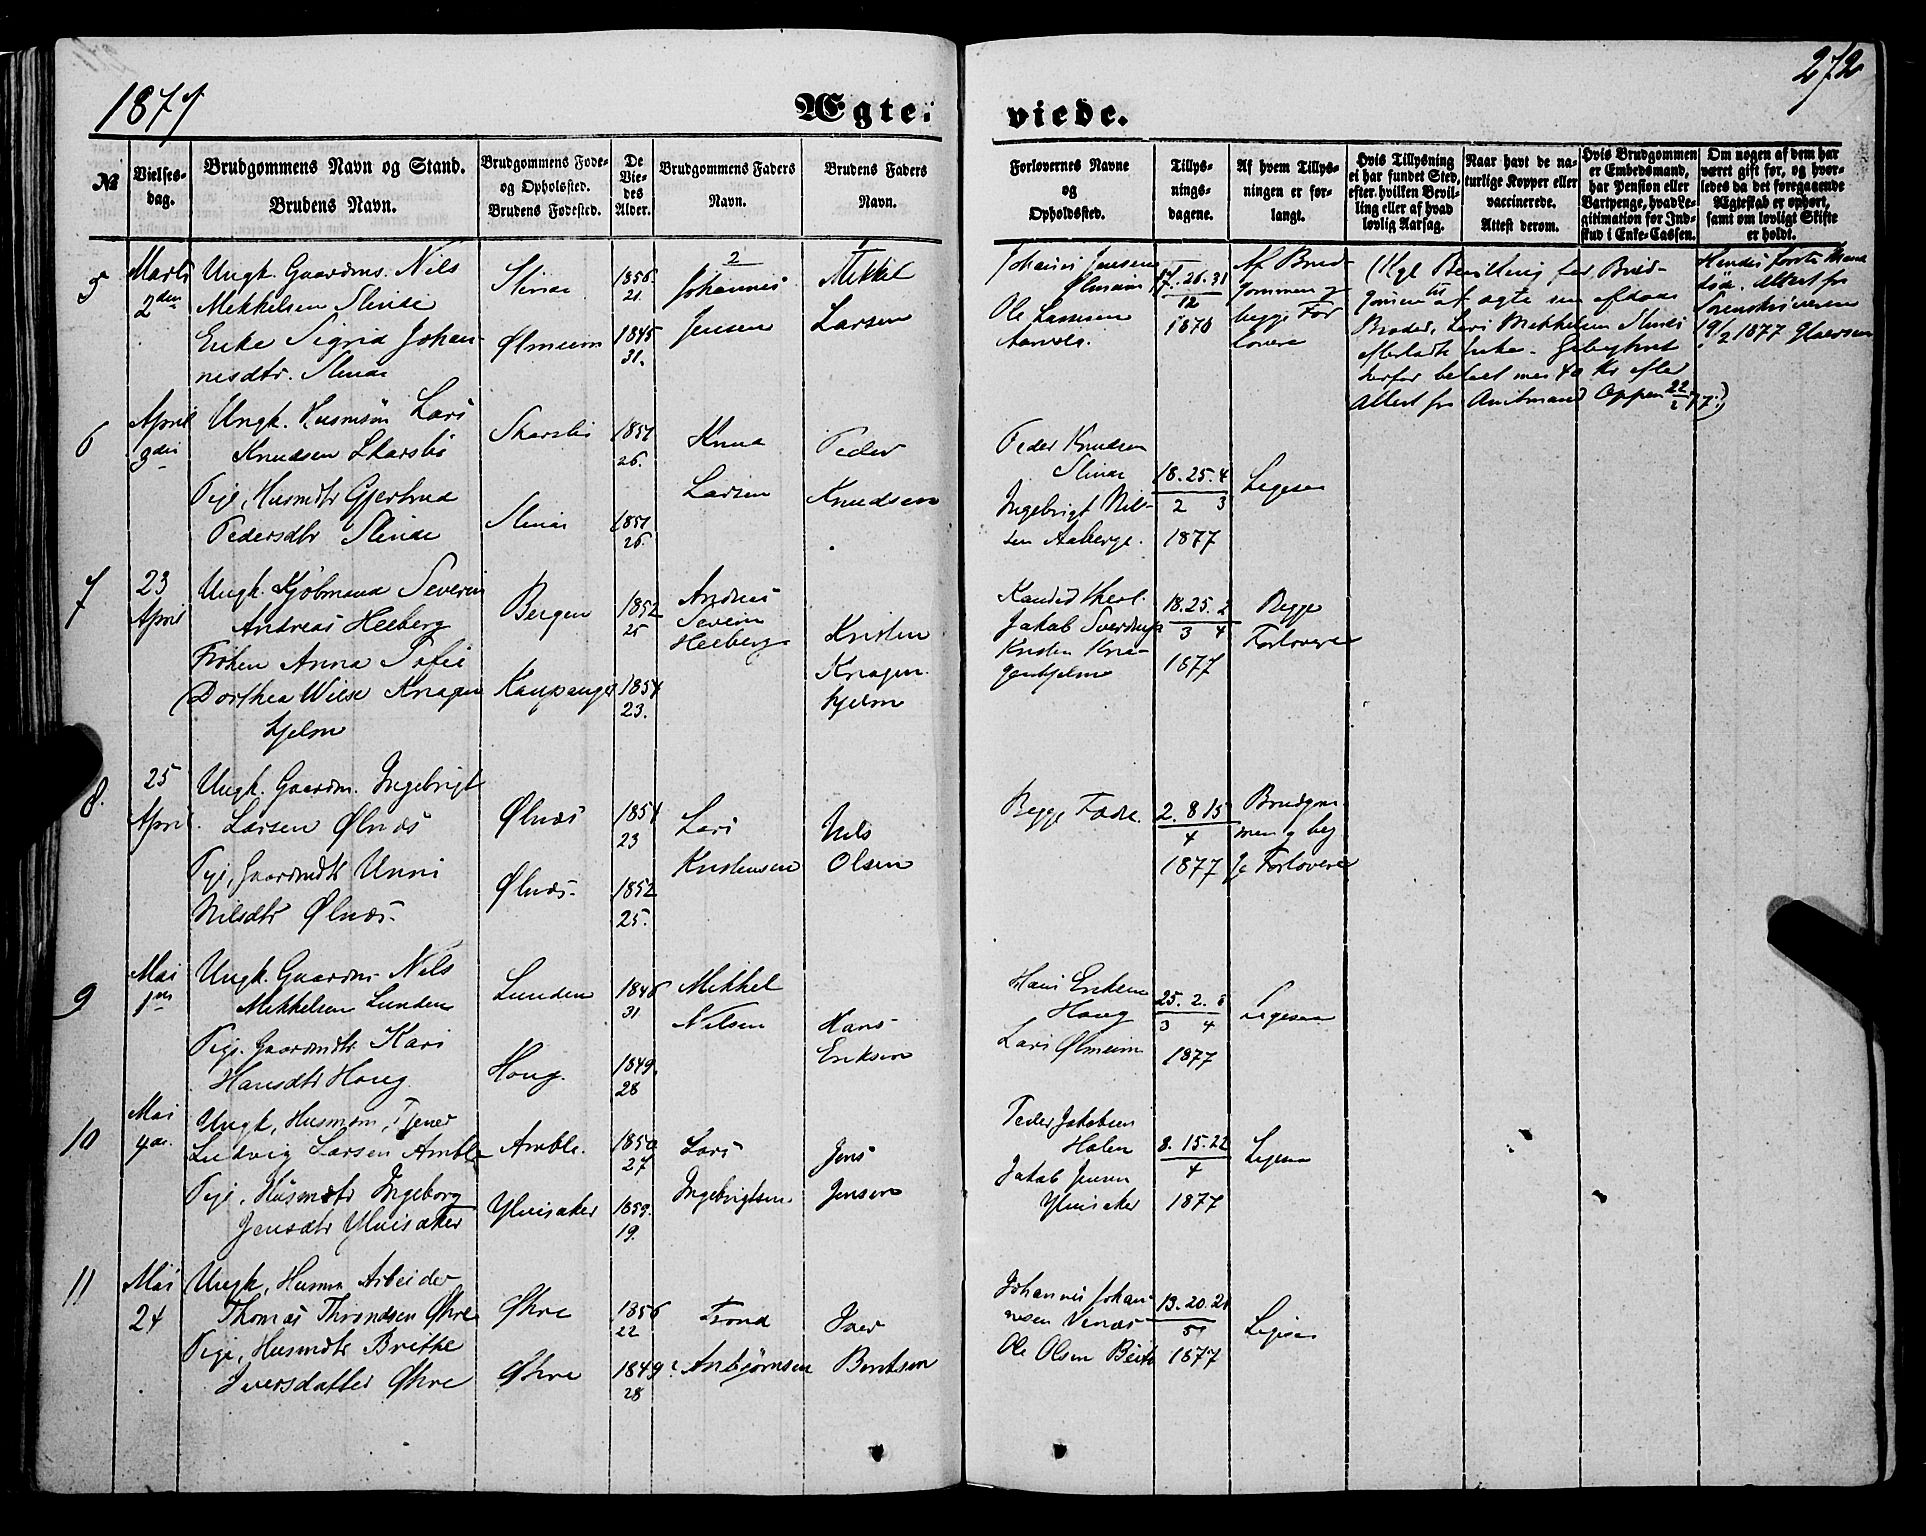 1877
272
Ægte:
viede.
№
Vielses-
dag.
Brudgommens Navn og Stand.
Brudens Navn.
Brudgommens Føde-
og Opholssted.
Brudens Fødested.
De
Vie-
des
Alder.
Brudgommens Faders
Navn.
Brudens Faders
Navn.
Forlovernes Navne
og
Opholdssted.
Tillys-
nings-
dagene.
Af hvem Tillys-
ningen er for-
langt.
Hvis Tillysning
ei har fundet Sted,
efter hvilken Bevil-
ling eller af hvad
lovlig Aarsag.
Naar havt de na-
turlige Kopper eller
vaccinerede.
Attest derom.
Hvis Brudgommen
er Embedsmand,
har Pension eller
Vartpenge, hvad Le-
gitimation for Ind-
skud i Enke-Cassen.
Om nogen af dem har
været gift før, og hvor-
ledes da det foregaaende
Ægteskab er ophørt,
samt om lovligt Skifte
er holdt.
5
Marts
2den
Ungk. Gaardms. Nils
Mekkelsen Slinde
Enke Sigrid Johan-
nesdtr. Slinde
Slinde
Ølmeim
1856
21.
1845
31.
2
Johannes
Jensen
Mekkel
Larsen
Johannes Jensen
Ølmeim
Ole Lassesen
17. 26. 31
12
1876
Af Brud-
gommen og
begge For-
lovere
(Kgl Bevilling for Brud-
gommen til at ægte sin afdøde
Broder, Lars Mekkelsen Slindes
efterladte Enke. Gebyhret
herfor betalt med 40 Kr efter
Attest fra Amtmand Oppen 22/2 77.)
Hendes første Mand
død. Attest fra
Sorenskriveren
19/2 1877
6
April
3die
Ungk. Husmsøn Lars
Knudsen Skarsbø
Pige, Husmdtr Gjertrud
Pedersdtr Slinde
Skarsbø
Slinde
1851
26.
1851
26.
Knud
Larsen
Peder
Knudsen
Peder Knudsen
Slinde
Ingebrigt Nil-
sen Aaberge.
18. 25. 4
2 3
1877
Ligesaa
7
23
April
Ungk. Kjøbmand Severin
Andreas Heeberg
Frøken Anna Sofie
Dorthea Wiese Knagen
hjelm
Bergen
Kaupanger
1852
25
1854
23.
Andreas
Severin
Heeberg
Kristen
Knagen-
hjelm
Kandid theol.
Jakob Sverdrup
Kristen Kna-
genhjelm
18. 25. 2
3 4
1877
Begge
Forlovere
8.
25
April.
Ungk. Gaardm. Ingebrigt
Larsen Ølnæs
Pige, Gaardmdtr Unni
Nilsdtr Ølnæs.
Ølnæs
Ølnæs.
1854
23
1852
25.
Lars
Kristensen
Nils
Olsen
Begge Fædre.
2. 8 15
4
1877
Brudgom-
men og beg-
ge Forlovere
9
Mai
1ste
Ungk. Gaardms. Nils
Mekkelsen Lunden
Pige. Gaardmdtr Kari
Hansdtr Houg
Lunden
Houg.
1846
31
1849.
28
Mekkel
Nilsen
Hans
Eriksen
Hans Eriksen
Houg
Lars Ølmeim
25. 2. 8
3 4
1877
Ligesaa
10
Mai
4de.
Ungk, Husmsøn, Tjener
Ludvig Larsen Amble
Pige, Husmdtr Ingeborg
Jensdtr Ylvisaker
Amble.
Ylvisaker
1850
27
1859.
19.
Lars
Ingebrigtsen
Jens
Jensen
Peder Jakobsen
Halen
Jakob Jensen
Ylvisaker
8. 15. 22
4
1877
Ligesaa
11
Mai
24
Ungk, Husmn Arbeider
Thomas Throndsen Øhre
Pige, Husmdtr Brithe
Iversdatter Øhre
Øhre
Øhre
1856
22
1849
28
Trond
Anbjørnsen
Iver
Bentsen
Johannes Johan-
nesen Vinæs
Ole Olsen
13. 20. 21
5
1877
Ligesaa